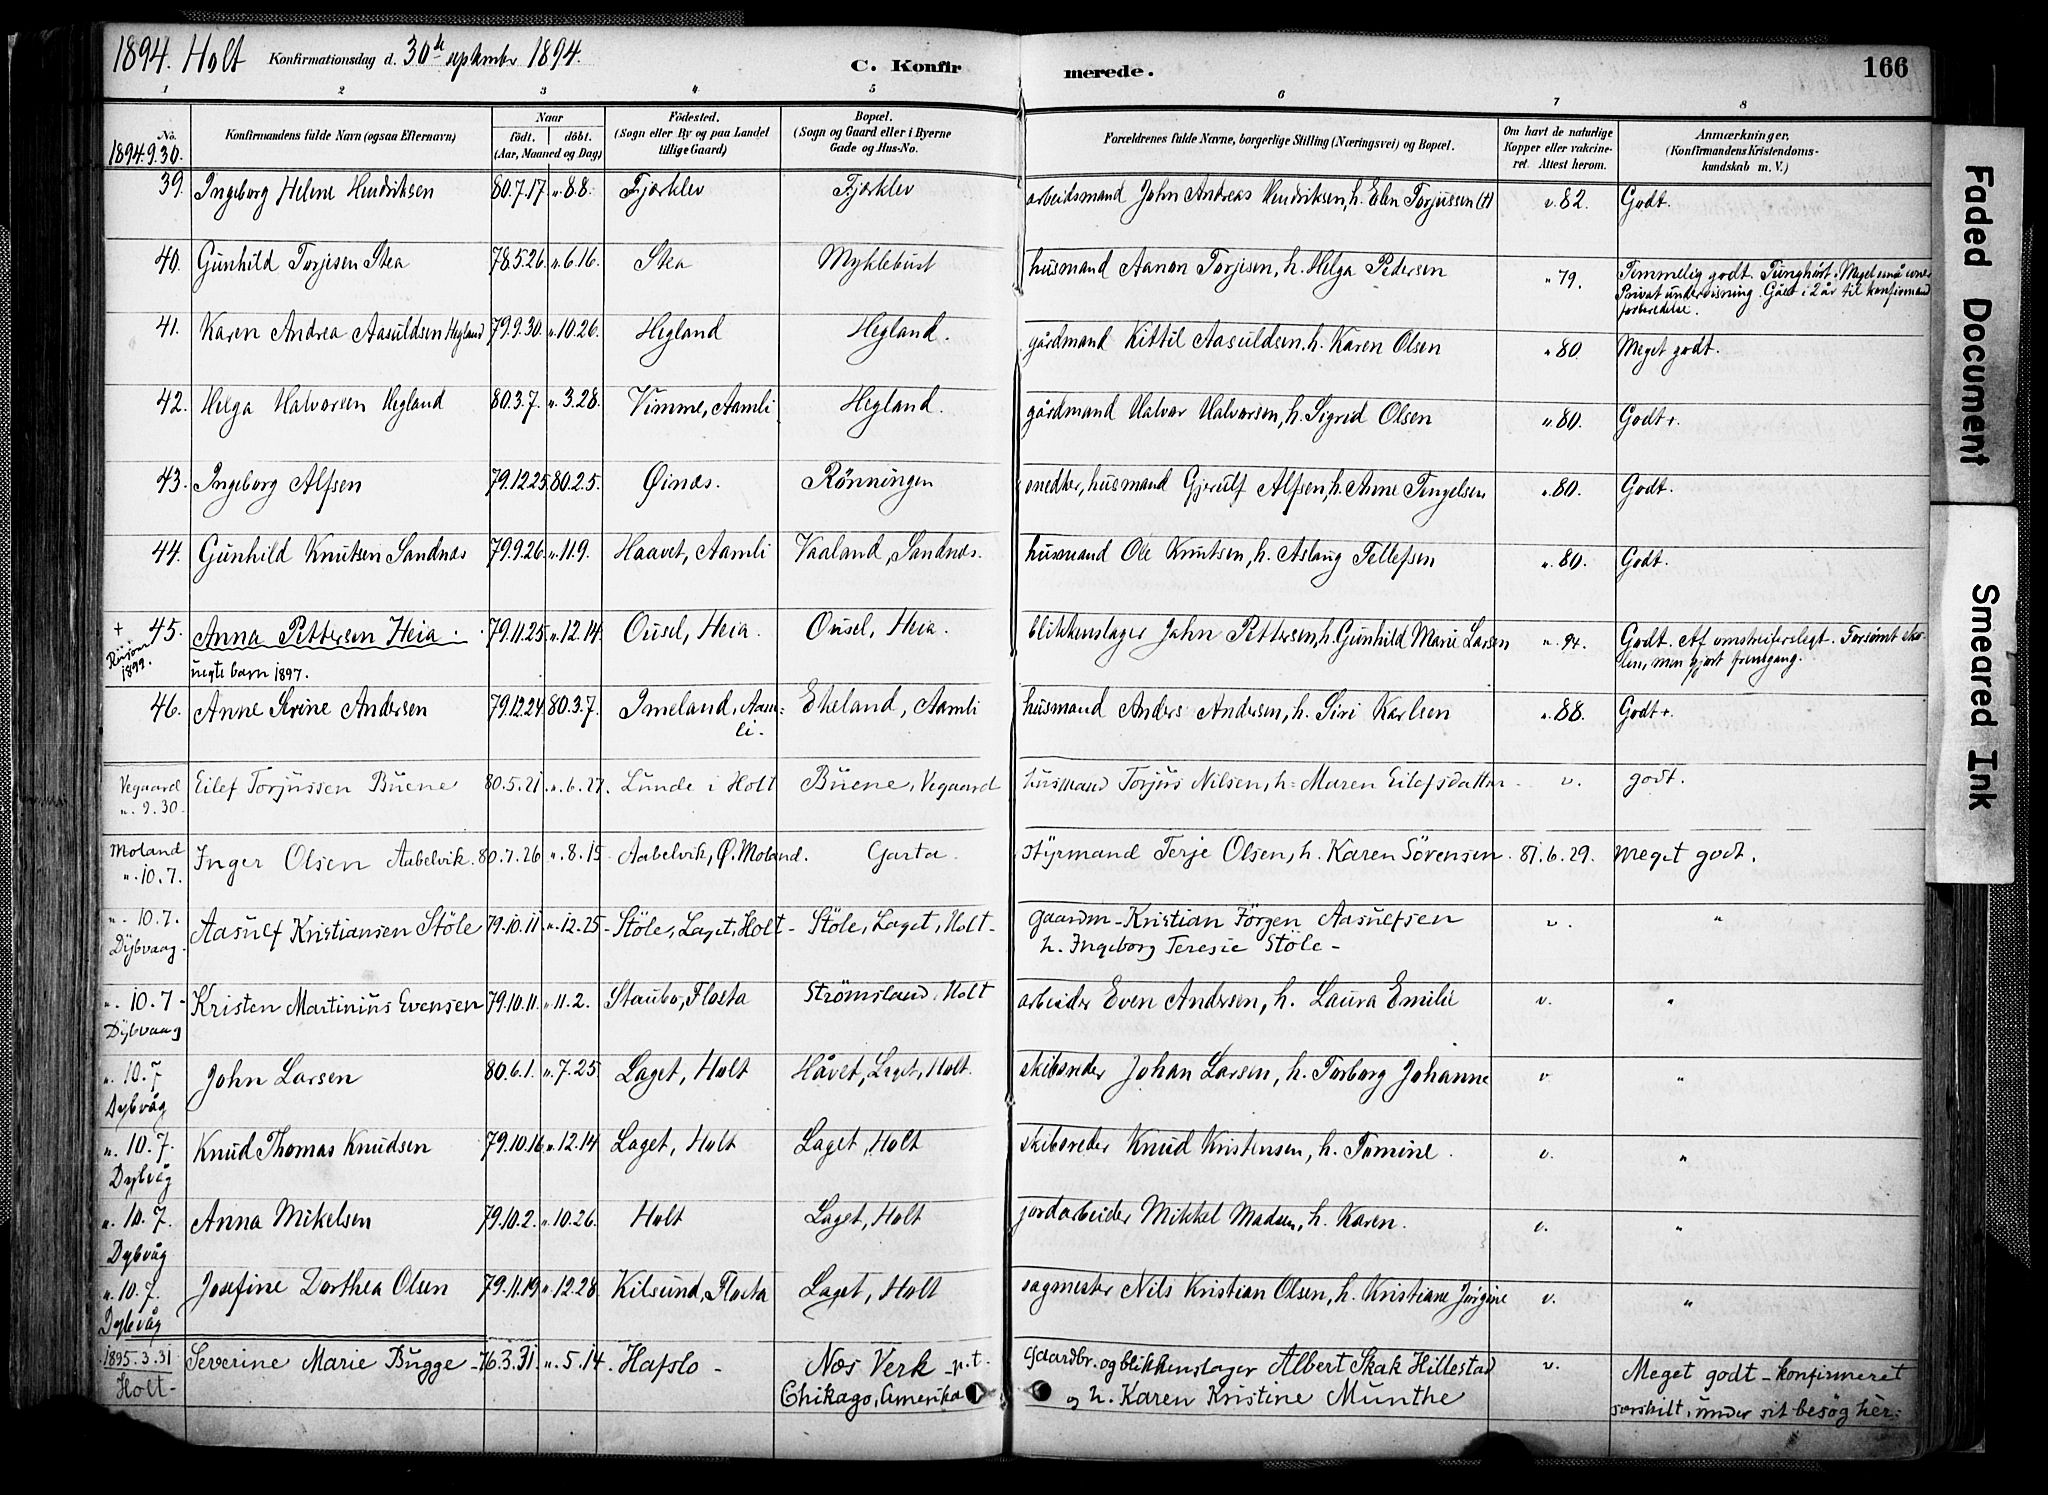 1894. Holt Konfirmationsdag d. 30te septembr 1894.
C. Konfirmerede.
166
1 2 3 4 5 6 7 8
No.
1894.9.30.
Konfirmandens fulde Navn (ogsaa Efternavn)
Naar
født. døbt.
(Aar, Maaned og Dag)
Fødested.
(Sogn eller By og paa Landet
tillige Gaard)
Bopæl.
(Sogn og Gaard eller i Byerne
Gade og Hus-No.
Forældrenes fulde Navne, borgerlige Stilling (Næringsvei) og Bopæl.
Om havt de naturlige
Kopper eller vakcine-
ret. Attest herom.
Anmærkninger.
(Konfirmandens Kristendoms-
kundskab m. V.)
39. Ingeborg Helene Hendriksen 80.7.17 „ 8.8. Fjærklev Fjærklev arbeidsmand John Andreas Hendriksen, h. Elen Torjussen (†) v. 82. Godt.
40. Gunhild Torjisen Skea 78.5.26. „. 6.16. Skea Myklebust husmand Aanon Torjisen, h. Helga Pedersen „ 79. Temmelig godt. Tunghørt. Meget små evner
Privat undervisning. Gået i 2 år til konfirmand
forberedelse.
41. Karen Andrea Aasuldsen Hegland 79.9.30. „. 10.26. Hegland Hegland. gårdmand Kittil Aasuldsen, h. Karen Olsen „ 80. Meget godt.
42. Helga Halvorsen Hegland 80.3.7. „. 3.28. Vimme, Aamli Hegland. gårdmand Halvor Halvorsen, h. Sigrid Olsen „. 80. Godt+.
43. Ingeborg Alfsen 79.12.25. 80.2.5. Øinæs. Rønningen snedker, husmand Gjerulf Alfsen, h. Anne Tengelsen „. 80. Godt.
44. Gunhild Knutsen Sandnæs 79.9.26. „. 11.9. Haavet, Aamli Vaaland, Sandnæs. husmand Ole Knutsen, h. Aslaug Tellefsen „. 80. Godt.
+ 45. Anna Pettersen Heia. 79.11.25. „. 12.14. Ousel, Heia. Ousel, Heia. blikkenslager John Pettersen, h. Gunhild Marie Larsen „. 94. Godt. Af omstreiferslegt. Forsømt sko-
1899. uegte barn 1897. len, men gjort fremgang.
46. Anne Serine Andersen 79.12.24. 80.3.7. Imeland, Aam-
li. Ekeland, Aamli husmand Anders Andersen, h. Siri Karlsen „. 88. Godt+.
Vegaard
„. 9.30. Eilef Torjussen Buene 80.5.21 „. 6.27. Lunde i Holt Buene, Vegaard husmand Torjus Nilsen, h= Maren Eilefsdatter v. godt.
Moland
„. 10.7. Inger Olsen Aabelvik. 80.7.26 „. 8.15 Aabelvik, Ø. Moland. Garta. styrmand Terje Olsen, h. Karen Sørensen 81.6.29. meget godt.
„. 10.7.
Dybvaag. Aasulf Kristiansen Støle 79.10.11 „. 12.25 Støle, Laget, Holt - Støle, Laget, Holt - gaardm - Kristian Jörgen Aasulfsen
h. Ingeborg Teresie Støle - v. "
„. 10.7 -
Dybvaag Kristen Martinius Evensen 79.10.11. „. 11.2. Staubo, Flosta Strømsland, Holt arbeider Even Andersen, h. Laura Emilie v. "
„. 10.7
Dybvåg John Larsen 80.6.1. „. 7.25 Laget, Holt Håvet, Laget, Holt. skibsreder Johan Larsen, h. Torborg Johanne v "
„. 10.7.
Dybvåg Knud Thomas Knudsen 79.10.16 „. 12.14 Laget, Holt Laget, Holt skibsreder Knud Kristensen, h. Tomine. v. "
„. 10.7.
Dybvåg Anna Mikelsen 79.10.2. „. 10.26. Holt Laget, Holt jordarbeider Mikkel Madsen, h. Karen. v. "
„. 10.7.
Dybvåg Josefine Dorthea Olsen 79.11.19 „. 12.28 Kilsund, Flosta Laget, Holt sagmester Nils Kristian Olsen, h. Kristiane Jörgine v. "
1895.3.31
Holt - Severine Marie Bugge - 76.3.31. „. 5.14. Hafslo - Næs Verk - p.t.
Chikago, Amerika Gaardbr. og blikkenslager Albert Skak Hillestad
og h. Karen Kristine Munthe v. Meget godt - konfirmeret
særskilt, under sit besøg her.
Faded Document
Smeared Ink